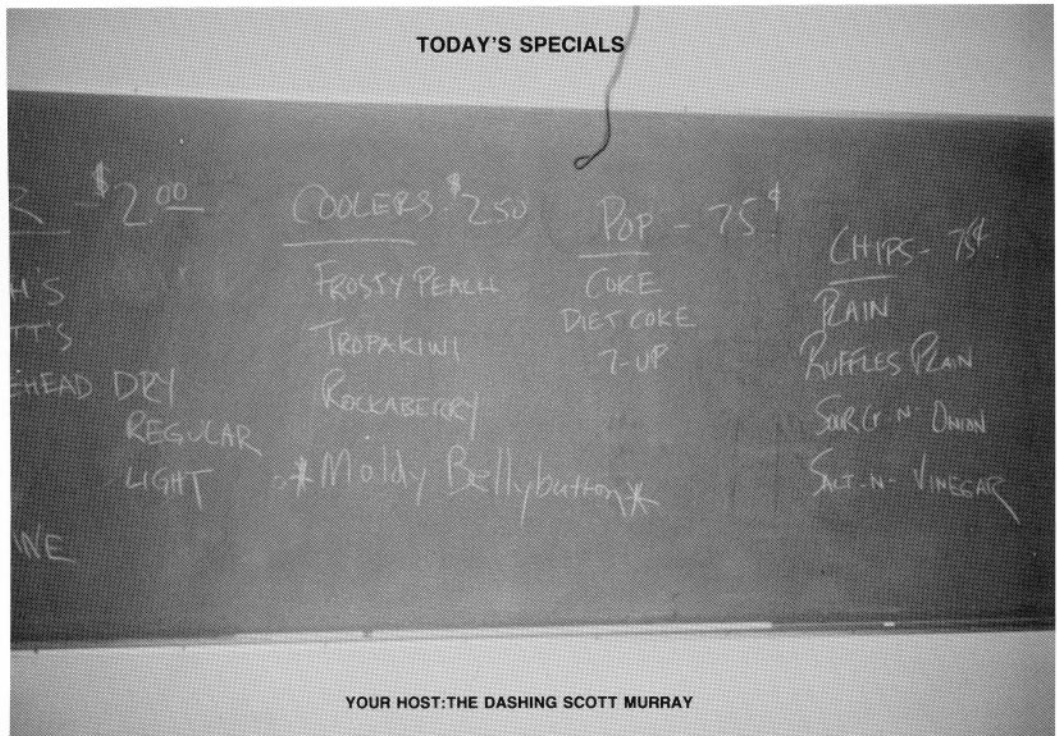 TODAY'S SPECIALS
R - $2.00
H'S
TT'S
EHEAD DRY
REGULAR
LIGHT
INE
COOLERS-$2.50
FROSTY PEACH
TROPAKIWI
ROCKABERRY
*Moldy Bellybutton*
POP - 75¢
COKE
DIET COKE
7-UP
CHIPS- 75¢
PLAIN
RUFFLES PLAIN
SOUR CR-N- ONION
SALT-N- VINEGAR
YOUR HOST:THE DASHING SCOTT MURRAY